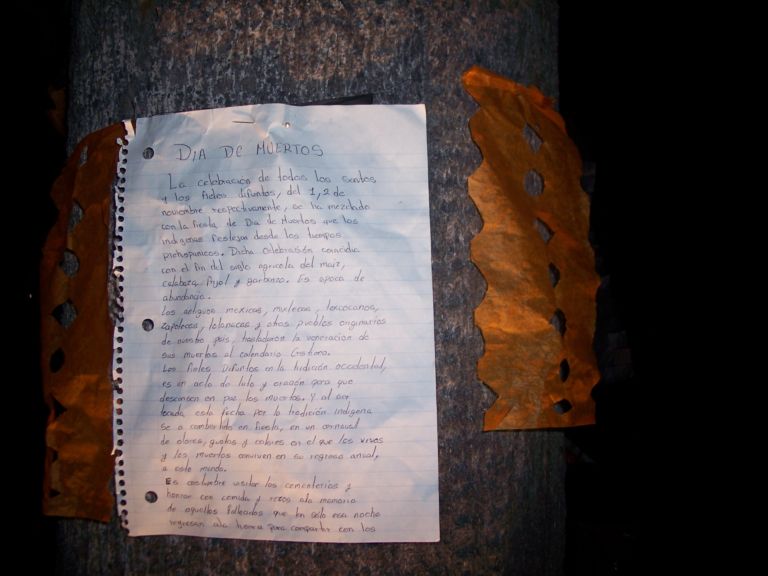 DIA DE MUERTOS
La celebracion de todos los santos
y los fieles difuntos, del 1,2 de
noviembre respectivamente, se ha mezclado
con la fiesta de Dia de Muertos que los
indigenas festejan desde los tiempos
prehispanicos. Dicha celebración coincidia
con el fin del siglo agricola del maiz,
calabaza, frijol y garbanzo. Es epoca de
abundancia.
Los antiguos mexicas, mixtecas, texcocanos,
zapotecas, totonacas y otros pueblos originarios
de nuestro pais, trasladaron la veneracion de
sus muertos al calendario Cristiano.
Los fieles Difuntos en la tradición occidental,
es un acto de luto y oración para que
descancen en paz los muertos. Y al ser
tocada esta fecha por la tradición indigena
se a combertido en fiesta, en un carnaval
de olores, gustos y colores en el que los vivos
y los muertos conviven en su regreso anual,
a este mundo.
Es costumbre visitar los cementerios y
honrar con comida y rezos ala memoria
de aquellos falleados que en solo esa noche
regresan ala tierra para compartir con los